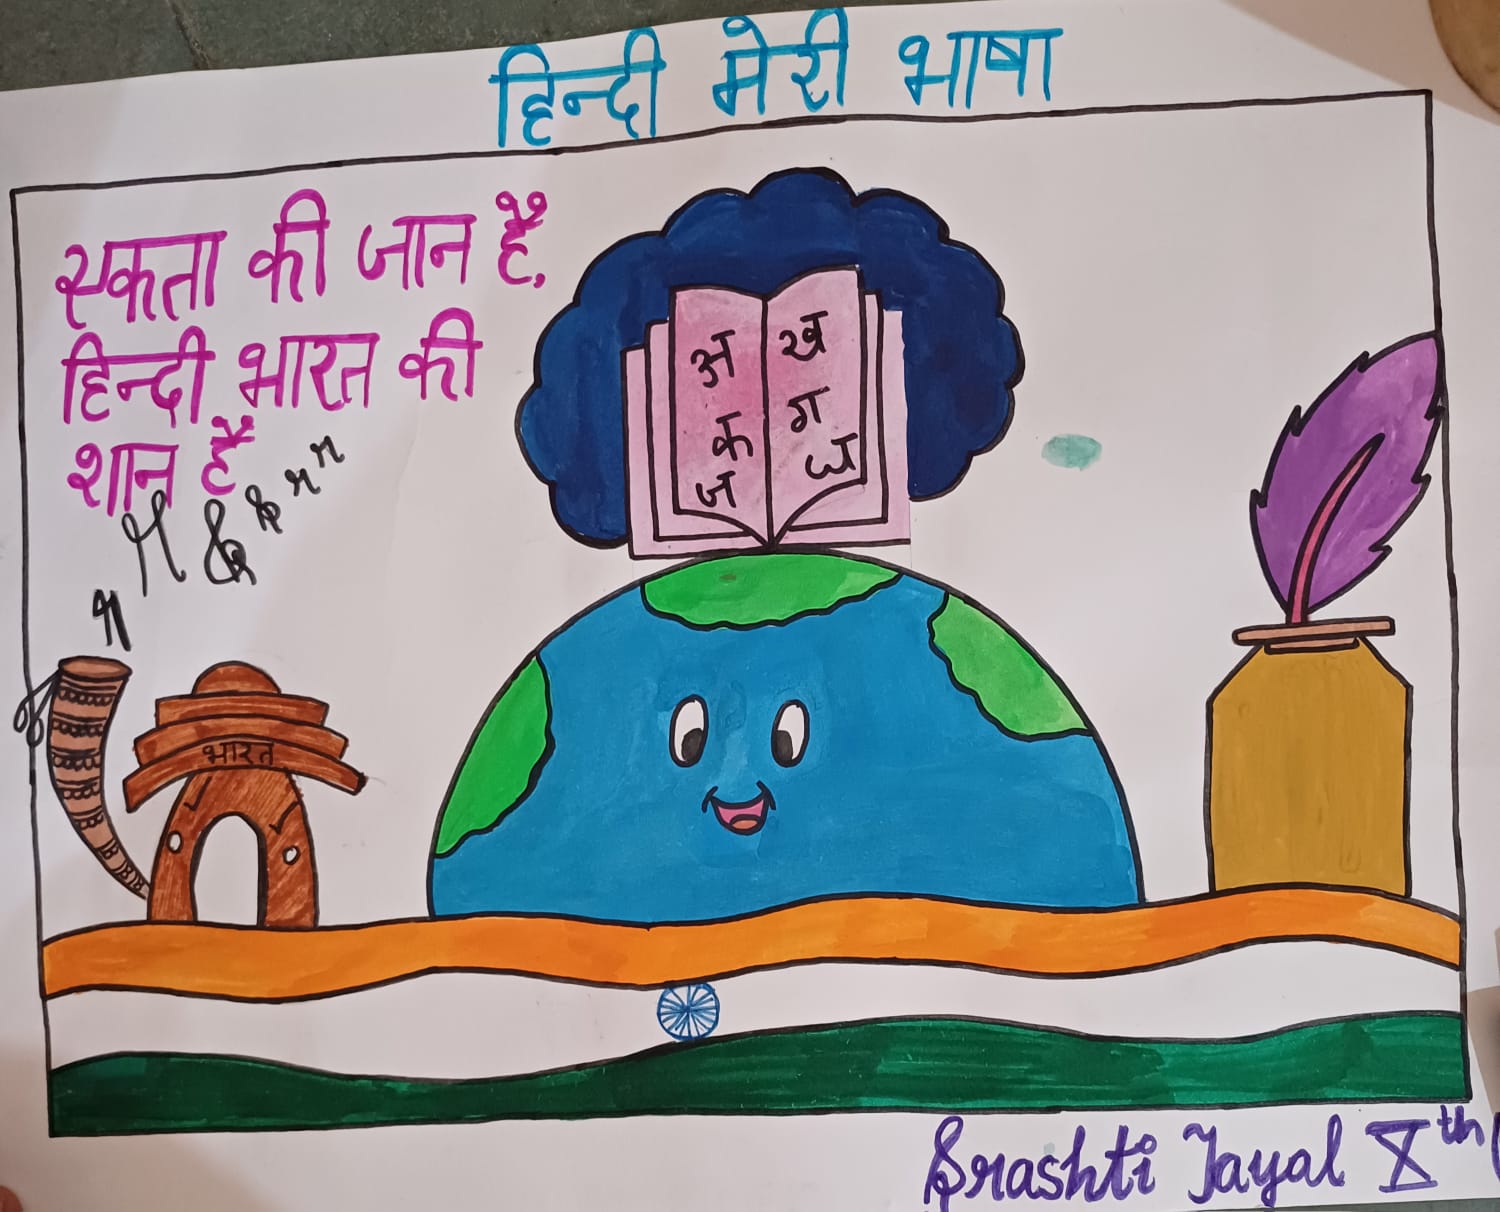 हिन्दी मेरी भाषा
एकता की जान है,
हिन्दी भारत की
शान है
अ
क
ज
ख
ग
घ
भारत
Srashti Jayal Xth (